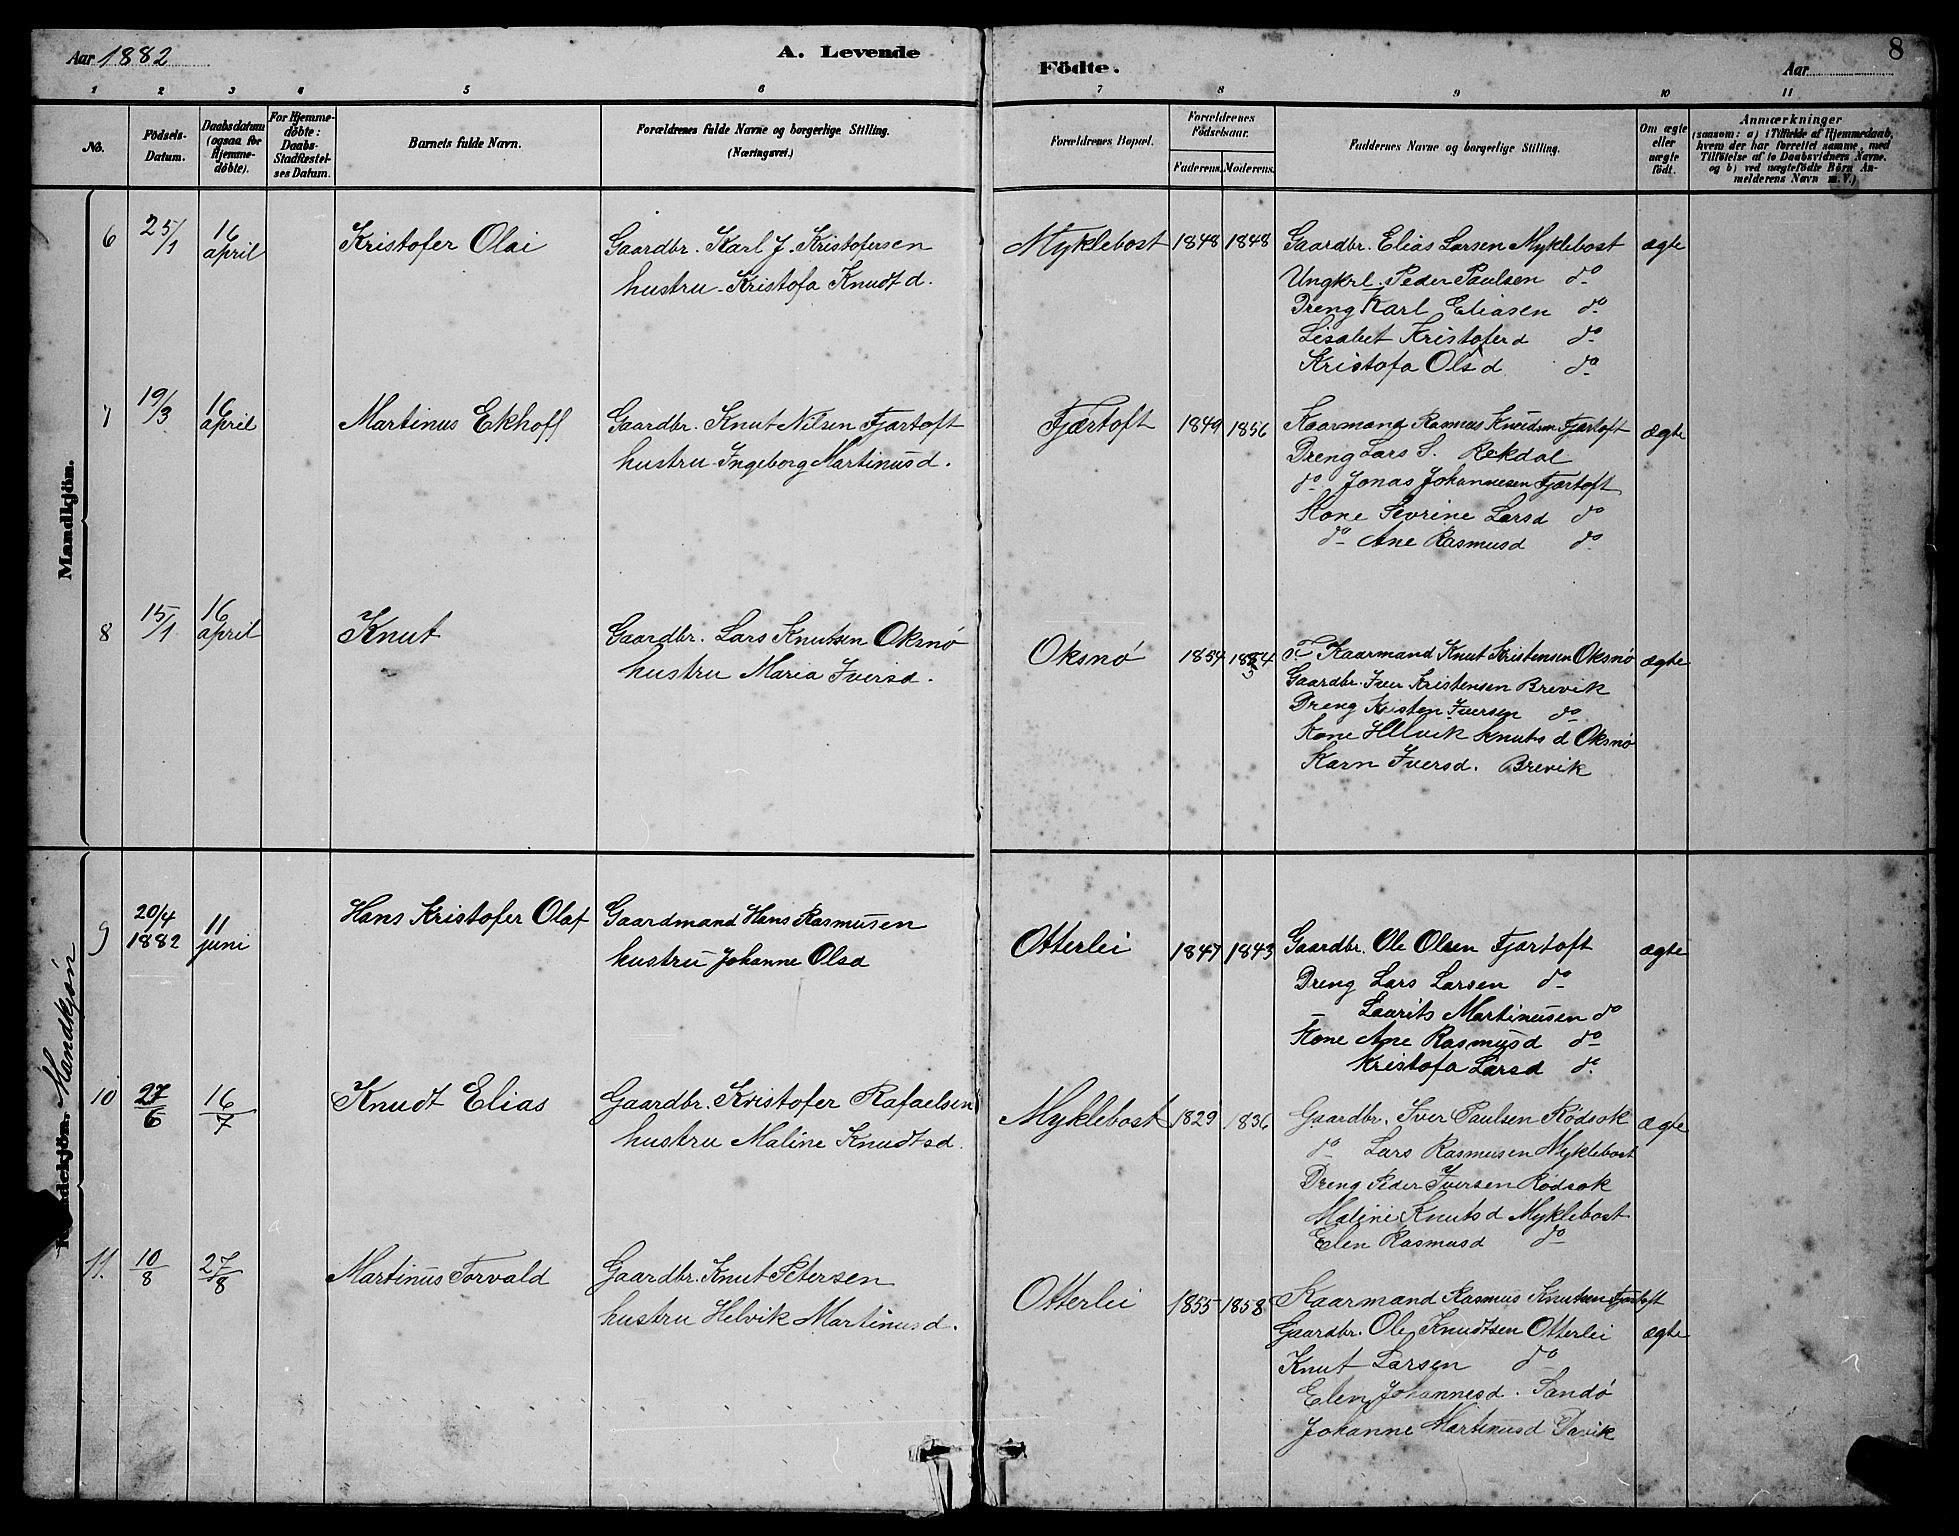 Aar 1882
A. Levende
Födte.
Aar
8
1 2 3 4 5 6 7 8 9 10 11
No.
Födsels-Datum.
Daabsdatum (ogsaa for Hjemmedöbte).
For Hjemmedöbte: Daabs-Stadfæstelses Datum.
Barnets fulde Navn.
Forældrenes fulde Navne og borgerlige Stilling. (Næringsvei.)
Forældrenes Bopæl.
Forældrenes Födselsaar.
Faderens. Moderens.
Faddernes Navne og borgerlige Stilling.
Om ægte eller uægte födt.
Anmærkninger
(saasom: a) i Tilfælde af Hjemmedaab, hvem der har forrettet samme, med Tilföielse af to Daabsvidners Navne. og b) ved uægtefödte Börn Anmelderens Navn m. V.)
Mandkjön.
6 25/1 16 april Kristofer Olai
Gaardbr. Karl J. Kristofersen
hustru Kristofa Knudtd.
Myklebost 1848 1848
Gaardbr. Elias Larsen Myklebost ægte
Ungkrl. Peder Paulsen do
Dreng Karl Eliasen do
Lisabet Kristoferd do
Kristofa Olsd do
7 19/3 16 april Martinus Ekhoff
Gaardbr. Knut Nilsen Fjærtoft
hustru Ingeborg Martinusd.
Fjærtoft 1849 1856
Kaarmand Rasmus Knudsen Fjærtoft ægte
Dreng Lars S. Rekdal
do Jonas Johannesen Fjærtoft
Kone Sevrine Larsd do
do Ane Rasmusd do
8 15/1 16 april Knut
Gaardbr. Lars Knutsen Oksnø
hustru Maria Iversd.
Oksnø 1854 1854
F. Kaarmand Knut Kristensen Oksnø ægte
Gaardbr. Iver Kristensen Brevik
Dreng Kristen Iversen do
Kone Helvik Knutsd Oksnø
Karn Iversd. Brevik
Kvindekjön. Mandkjøn
9 20/4 1882 11 juni Hans Kristofer Olaf
Gaardmand Hans Rasmusen
hustru Johanne Olsd
Otterlei 1847 1843
Gaardbr. Ole Olsen Fjærtoft ægte
Dreng Lars Larsen do
Laurits Martinusen do
Kone Ane Rasmusd do
Kristofa Larsd do
10 27/6 16/7 Knudt Elias
Gaardbr. Kristofer Rafaelsen
hustru Maline Knudtsd.
Myklebost 1829 1836
Gaardbr. Iver Paulsen Rødsok ægte
do Lars Rasmusen Myklebost
Dreng Peder Iversen Rødsok
Maline Knutsd Myklebost
Elen Rasmusd do
11. 10/8 27/8 Martinus Torvald
Gaardbr. Knut Petersen
hustru Helvik Martinusd.
Otterlei 1855 1858
Kaarmand Rasmus Knutsen Fjærtoft
Gaardbr. Ole Knudtsen Otterlei ægte
Knut Larsen do
Elen Johannesd. Sandø
Johanne Martinusd Davik